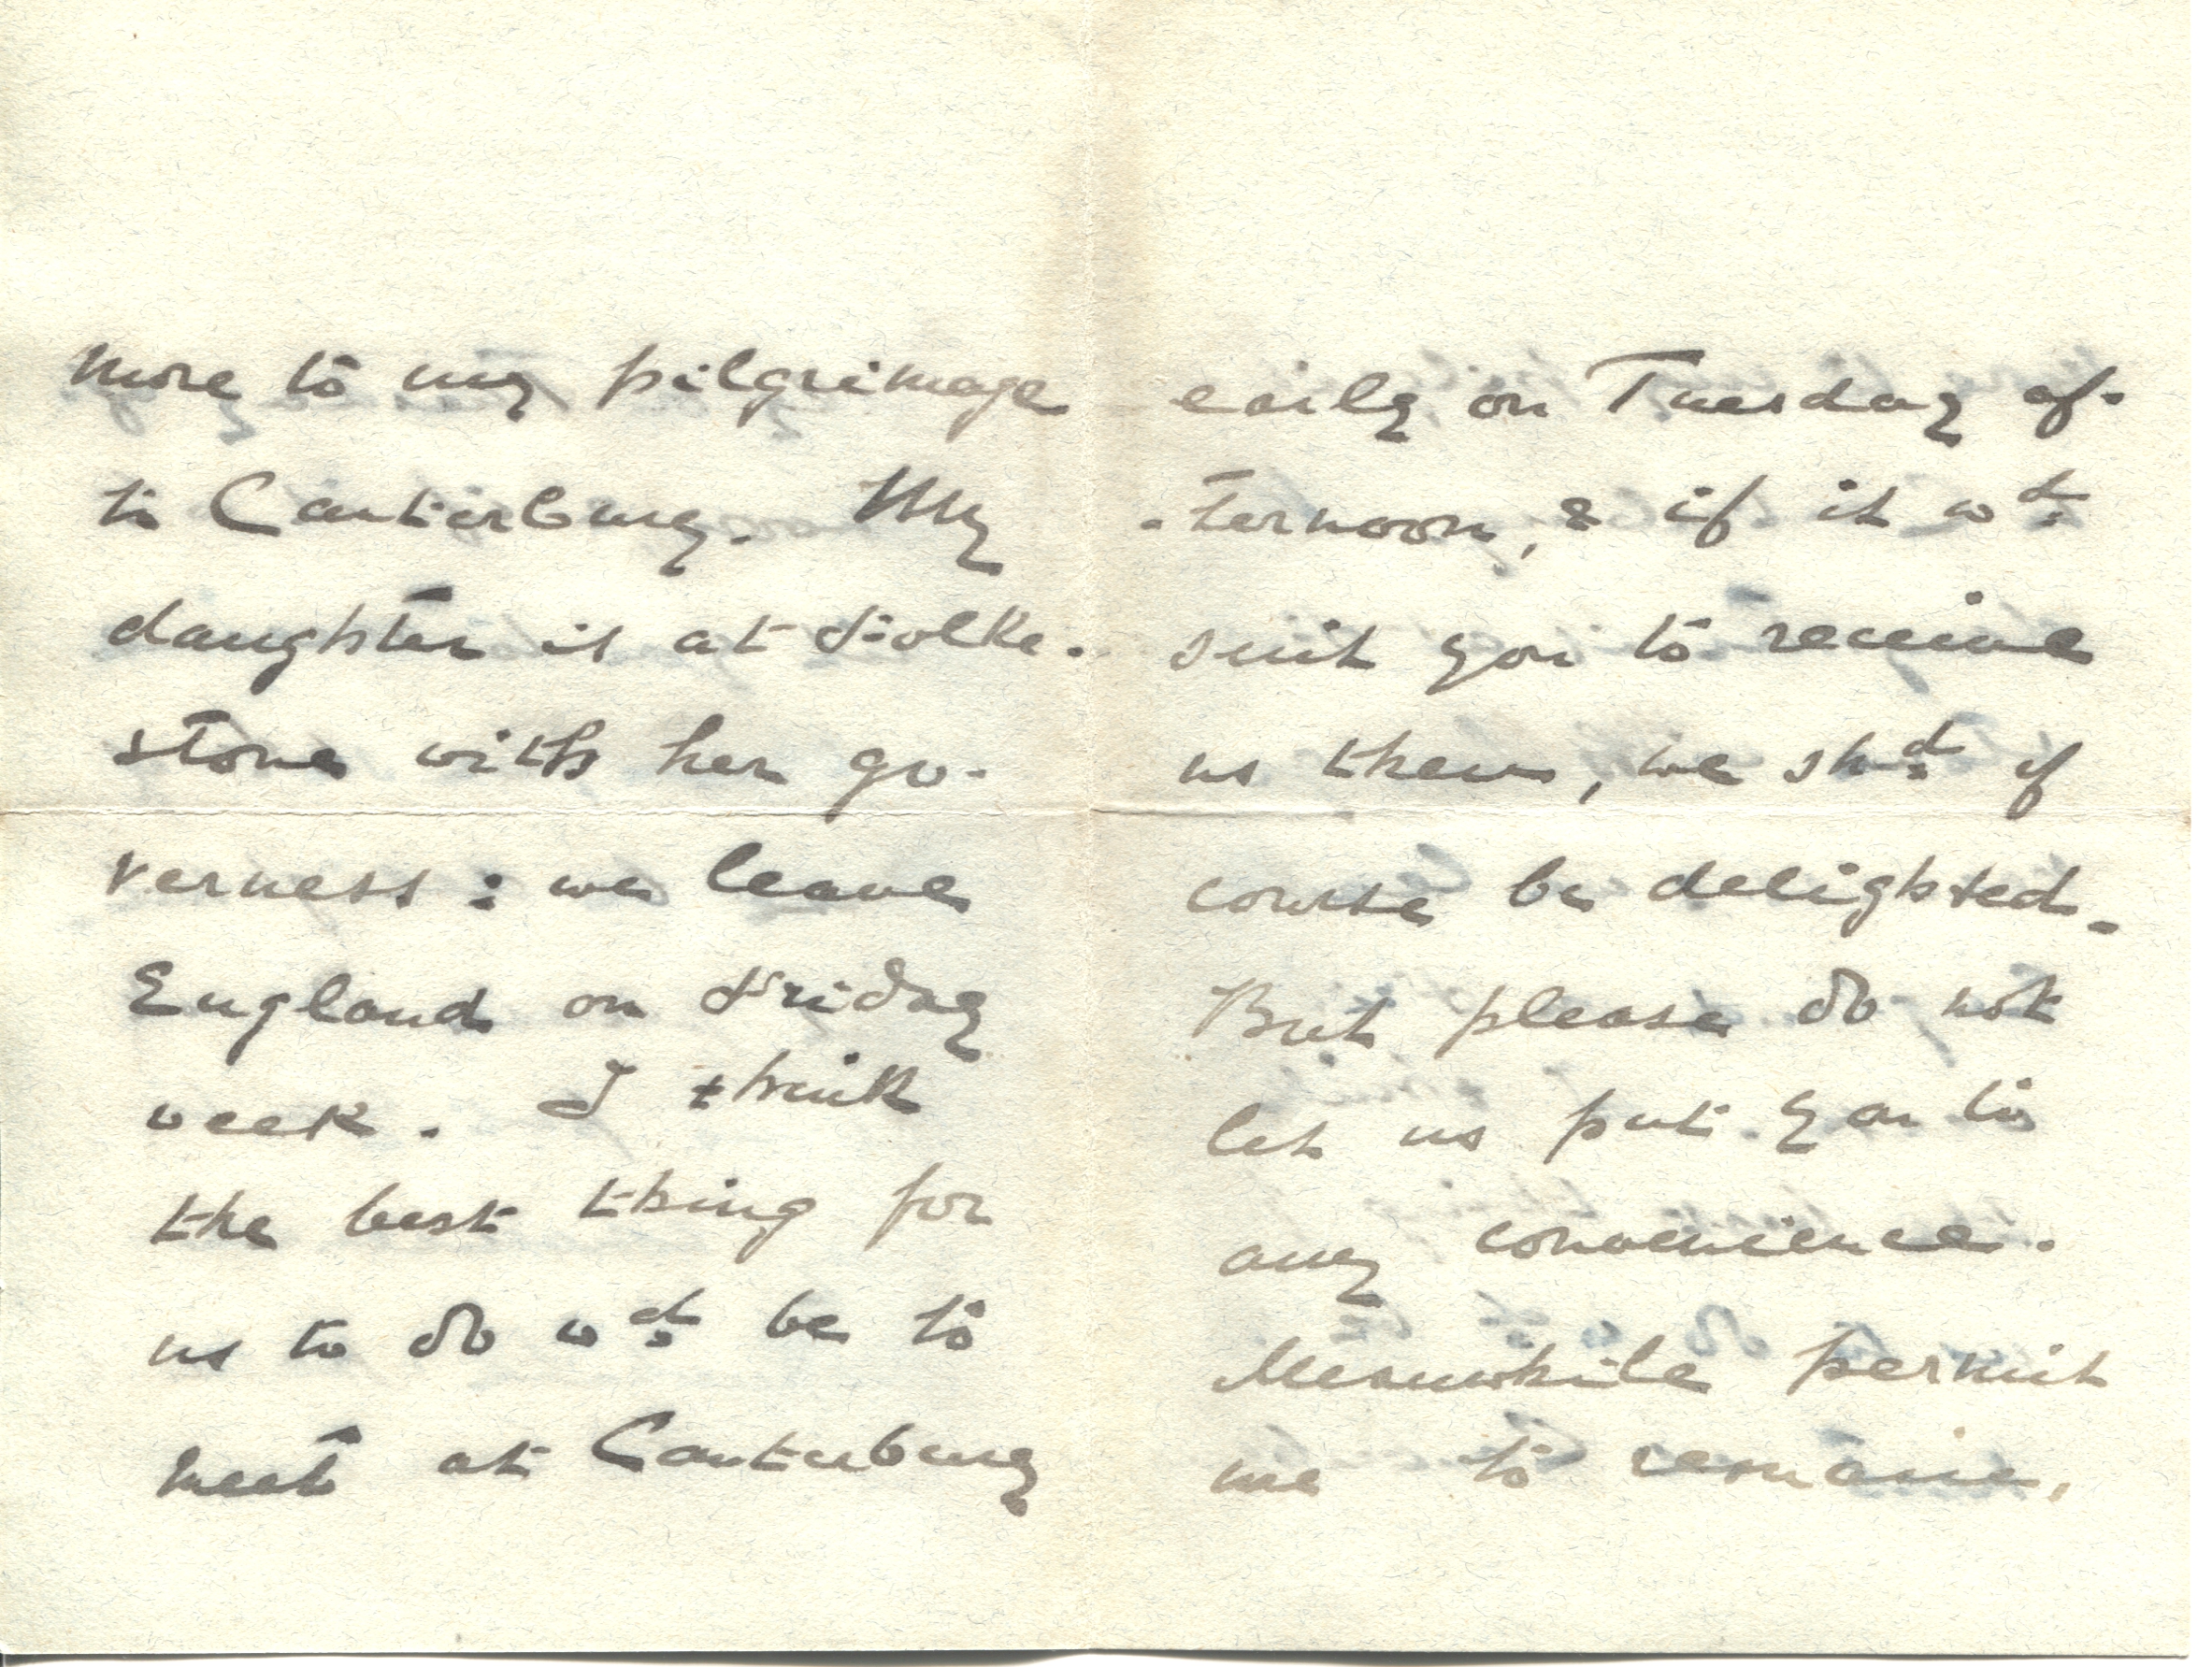 more to my pilgrimage
to Canterbury. My
daughter is at Folke-
stone with her go-
verness: we leave
England on Friday
week. I think
the best thing for
us to do wd. be to
meet at Canterbury
early on Tuesday af-
-ternoon, & if it wd.
suit you to receive
us then, we shd. of
course be delighted.
But please do not
let us put you to
any convenience.
Meanwhile permit
me to remain,